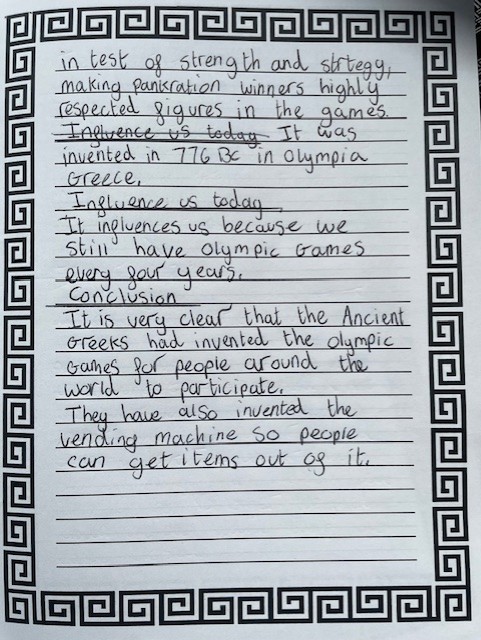 in test of strength and strtegy,
making pankration winners highly
respected figures in the games.
Influence us today It was
invented in 776 BC in Olympia
Greece.
Influence us today
It influences us because we
still have Olympic Games
every four years.
Conclusion
It is very clear that the Ancient
Greeks had invented the olympic
Games for people around the
world to participate.
They have also invented the
vending machine so people
can get items out of it.